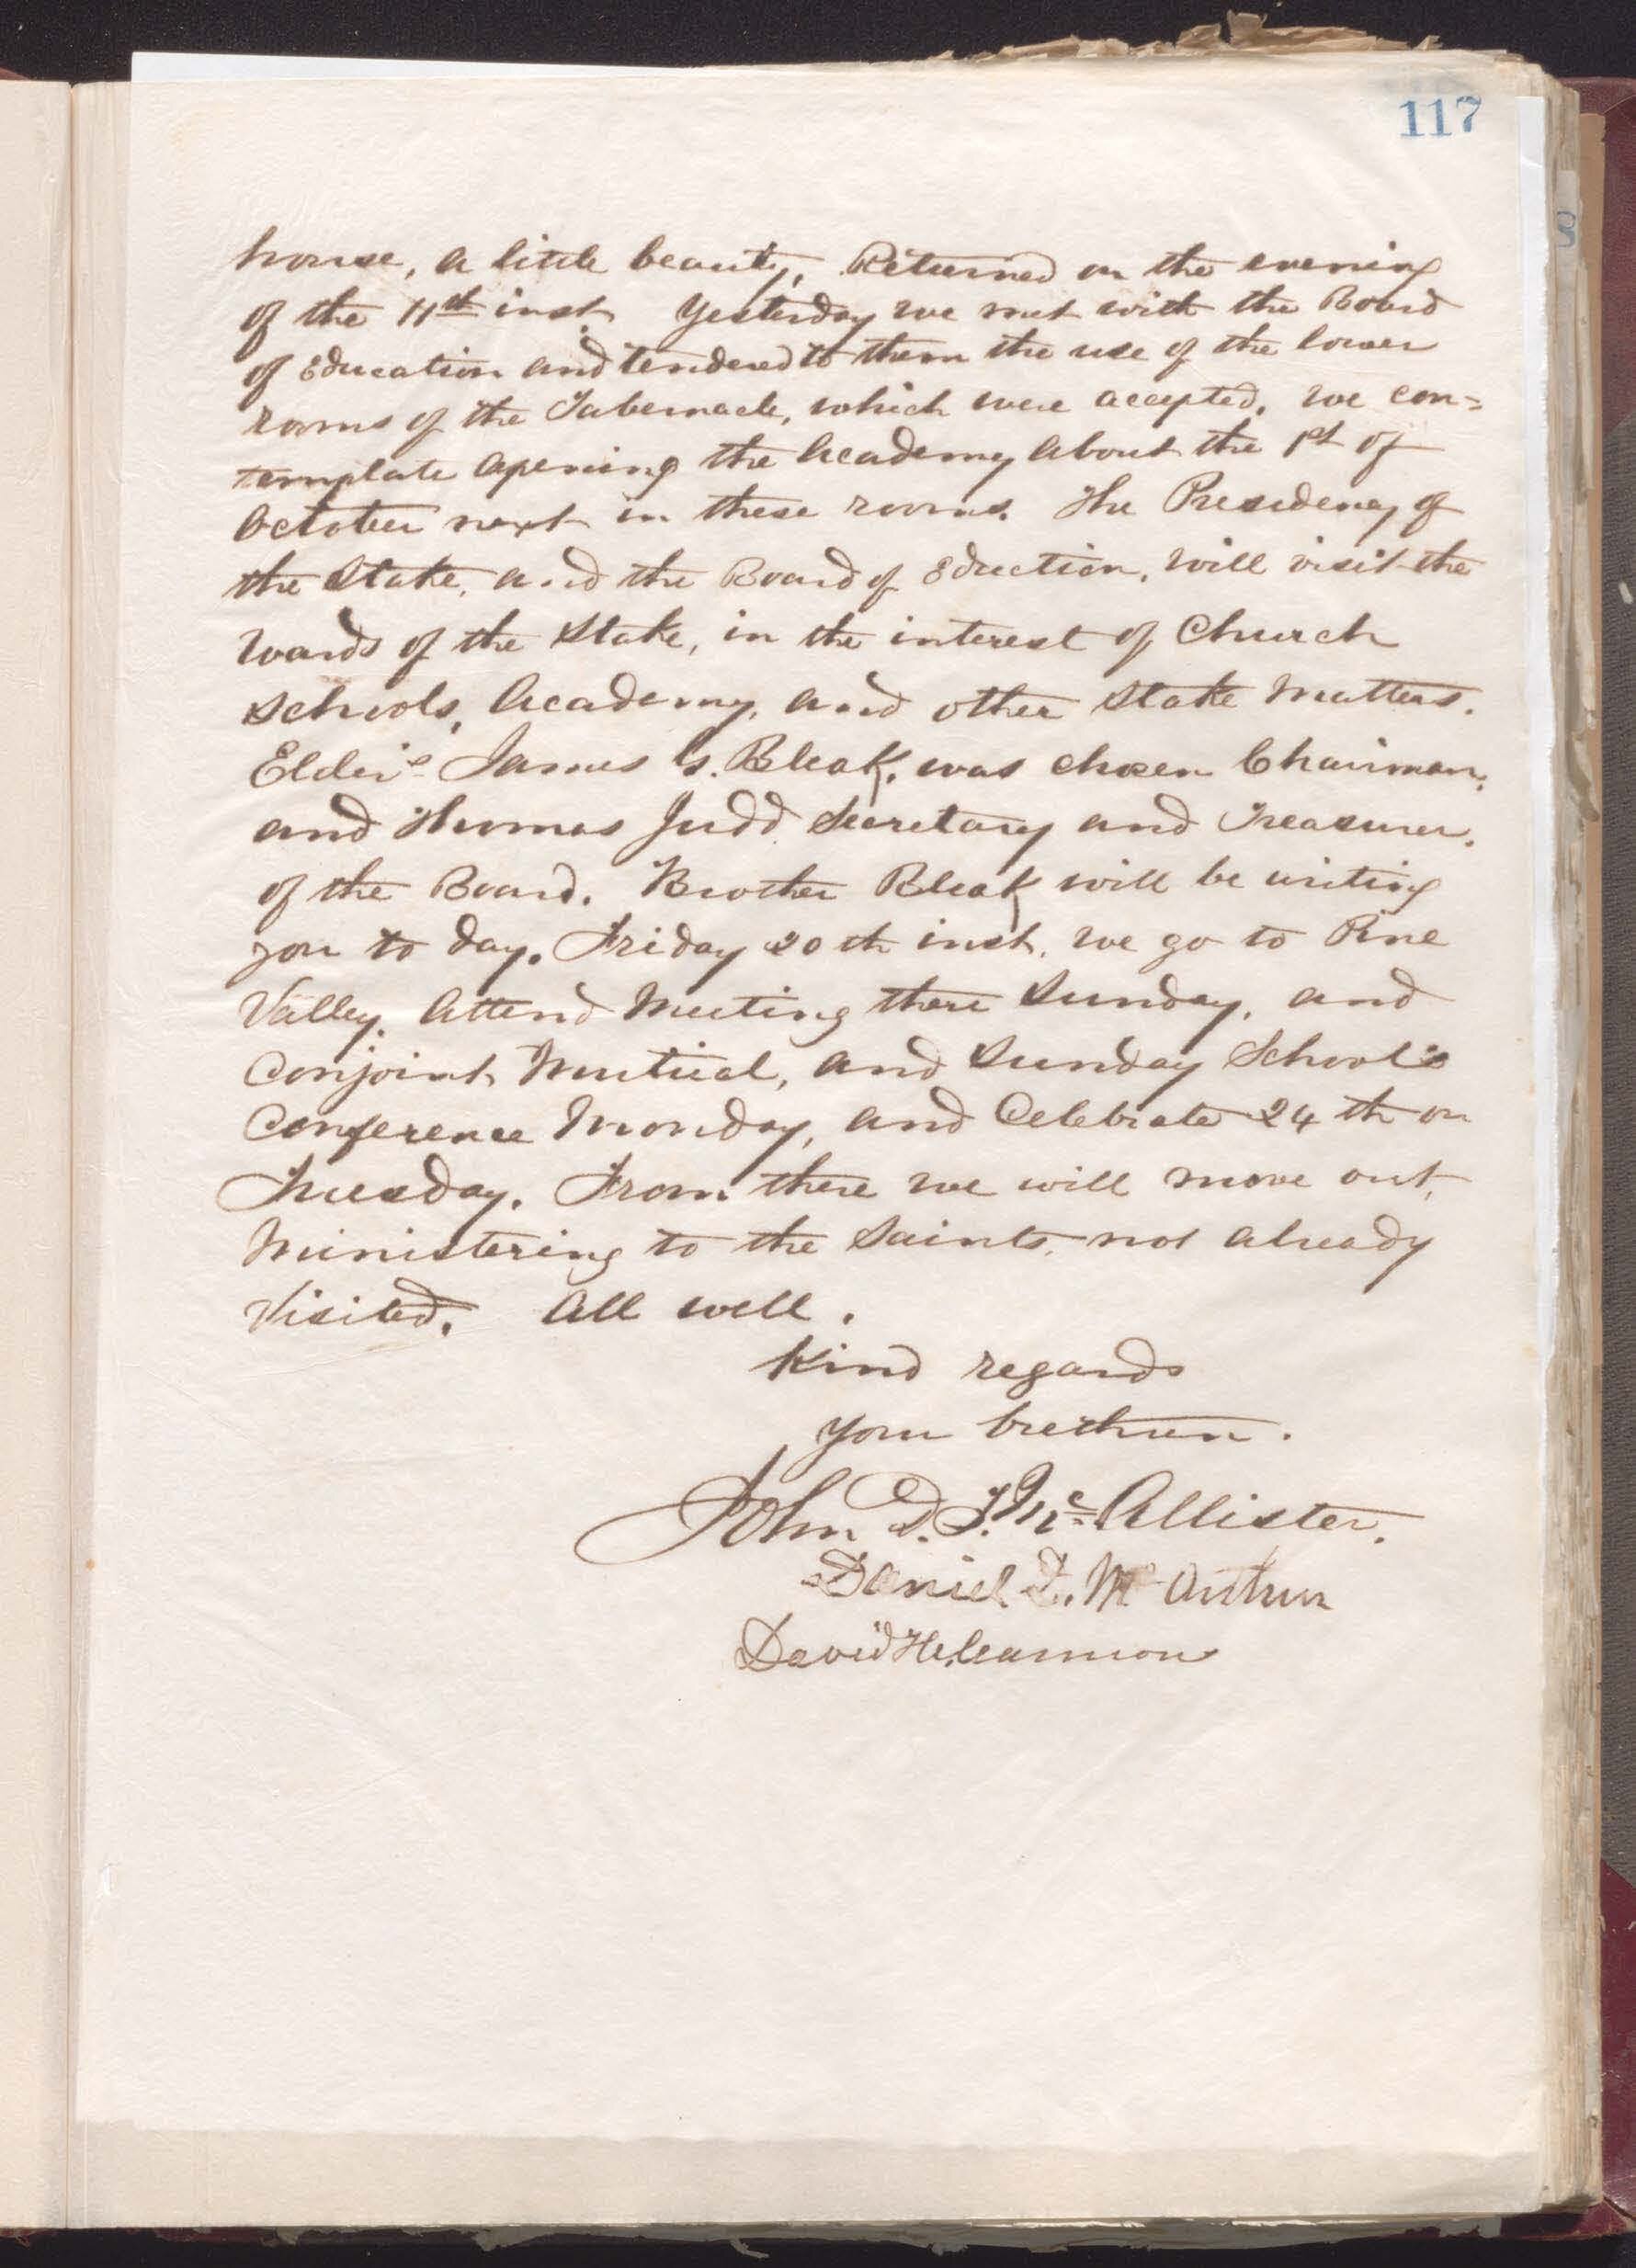 117
house, a little beauty, Returned on the evening
of the 11th inst. Yesterday we met with the Board
of Education and tendered to them the use of the lower
rooms of the Tabernacle, which were accepted, we con=
template opening the Academy about the 1st of
October next in these rooms. The Presidency of
the Stake, and the Board of Eduction, will visit the
wards of the Stake, in the interest of Church
schools, Academy, and other Stake Matters.
Elders James G. Bleak, was chosen Chairman,
and Thomas Judd Secretary and Treasurer,
of the Board. Brother Bleak will be writing
you to day. Friday 20th inst. we go to Pine
Valley. Attend Meeting there Sunday, and
Conjoint Mutual, and Sunday School's
Conference Monday, and Celebrate 24th on
Tuesday. From there we will move out,
Ministering to the Saints, not already
Visited. All well.
Kind regards
your brethren.
John D. T. McAllister.
Daniel D. McArthur
David H. Cannon